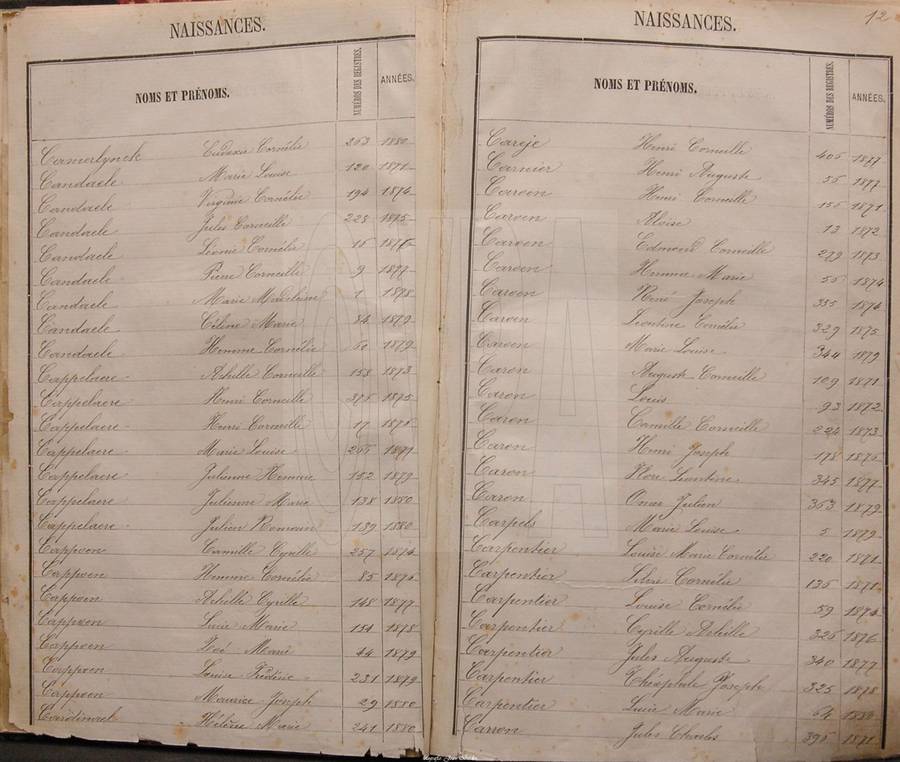 NAISSANCES.
NOMS ET PRÉNOMS. NUMÉROS DES REGISTRES. ANNÉES.
Camerlynck Eudoxie Cornélie 263 1880
Candaele Marie Louise 120 1871
Candaele Virginie Cornélie 194 1874
Candaele Jules Corneille 228 1875
Candaele Léonie Cornélie 16
Candaele Pierre Corneille 9 1877
Candaele Marie Madeleine 1 1878
Candaele Céline Marie 84 1879
Candaele Hemma Cornélie 1879
Cappelaere Achille Corneille 158 1873
Cappelaere Henri Corneille 1875
Cappelaere Henri Corneille 17
Cappelaere Marie Louise
Cappelaere Julienne Hemma 152 1879
Cappelaere Julienne Marie 138 1880
Cappelaere Julien Romain 139 1880
Cappoen Camille Cyrille 257 1874
Cappoen Hemma Cornélie 85
Cappoen Achille Cyrille 148 1877
Cappoen Lucie Marie 154 1878
Cappoen Zoé Marie 44 1879
Cappoen Louise 231 1879
Cappoen Maurice Joseph 29 1880
Cardinael Hélène Marie 241 1880
NAISSANCES.
12
NOMS ET PRÉNOMS. NUMÉROS DES REGISTRES. ANNÉES.
Careje Henri Corneille 406 1877
Carnier Henri Auguste 56 1877
Caroen Henri Corneille 1871
Caroen Aloise 13 1872
Caroen Edmond Corneille 279 1873
Caroen Hemma Marie 56 1874
Caroen René Joseph 335 1874
Caroen Leontine Cornélie 329 1875
Caroen Marie Louise 344 1879
Caron Auguste Corneille 109 1871
Caron Louis 93 1872
Caron Camille Corneille 224 1873
Caron Henri Joseph 178
Caron Flore Leontine 345 1877
Caron Omer Julien 353 1879
Carpels Marie Louise 5 1879
Carpentier Louise Marie Cornélie 220 1871
Carpentier Cornélie 135
Carpentier Louise Cornélie 59 1874
Carpentier Cyrille Achille 326 1876
Carpentier Jules Auguste 340 1877
Carpentier Théophile Joseph 325 1878
Carpentier Lucie Marie 64 1880
Carron Jules Charles 396 1871